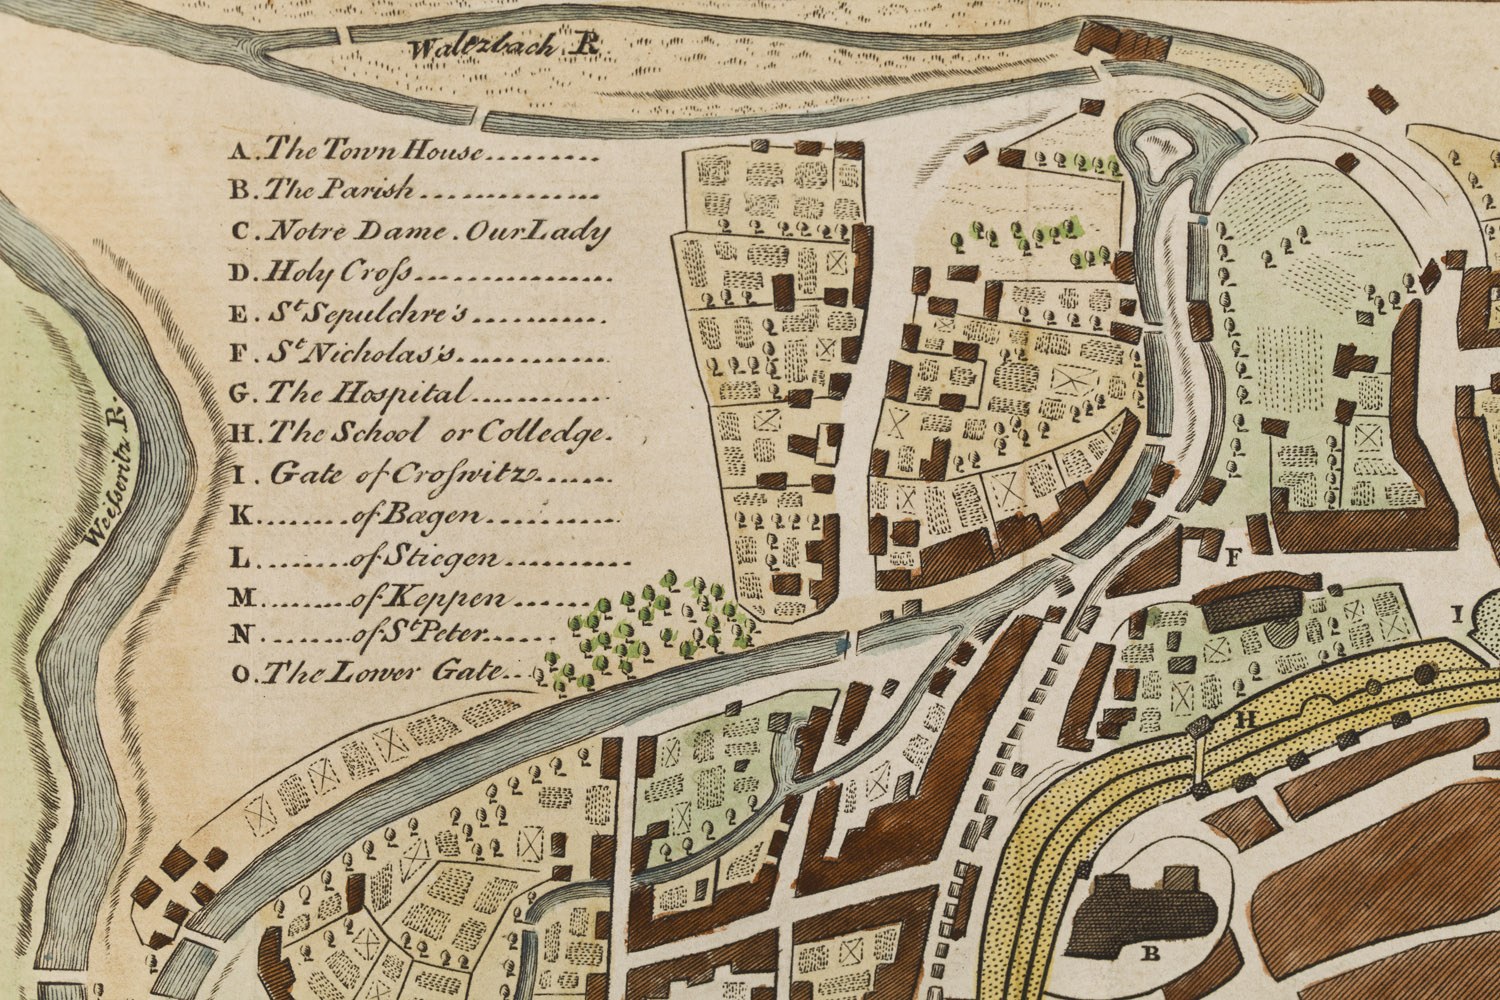 Waltzbach R
A. The Town House.........
B. The Parish.............
C. Notre Dame. Our Lady
D. Holy Croſs.............
E. St Sepulchre's.........
F. St Nicholas's..........
G. The Hospital...........
H. The School or Colledge.
I. Gate of Croſwitz......
K........of Bægen..........
L........of Stiegen..........
M........of Keppen......
N........of St Peter......
O. The Lower Gate...
Weelsoritz R.
F
I
H
B